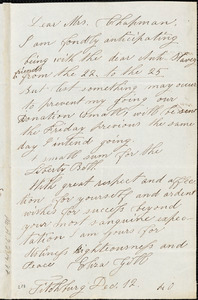 Dear Mrs. Chapman.
I am fondly anticipating
being with the dear Anti Slavery
friends
from the 22. to the 25
But lest something may occur
to prevent my going our
Donation Small, will be sent
the Friday Previous the same
day I intend going.
A small sum for the
Liberty Bell.
With great respect and affec
tion for yourself, and ardent
wishes for success beyond
your most sanguine expec
tation, I am yours for
Holiness Righteousness and
Peace Eliza Gill
Fitchburg Dec. 12